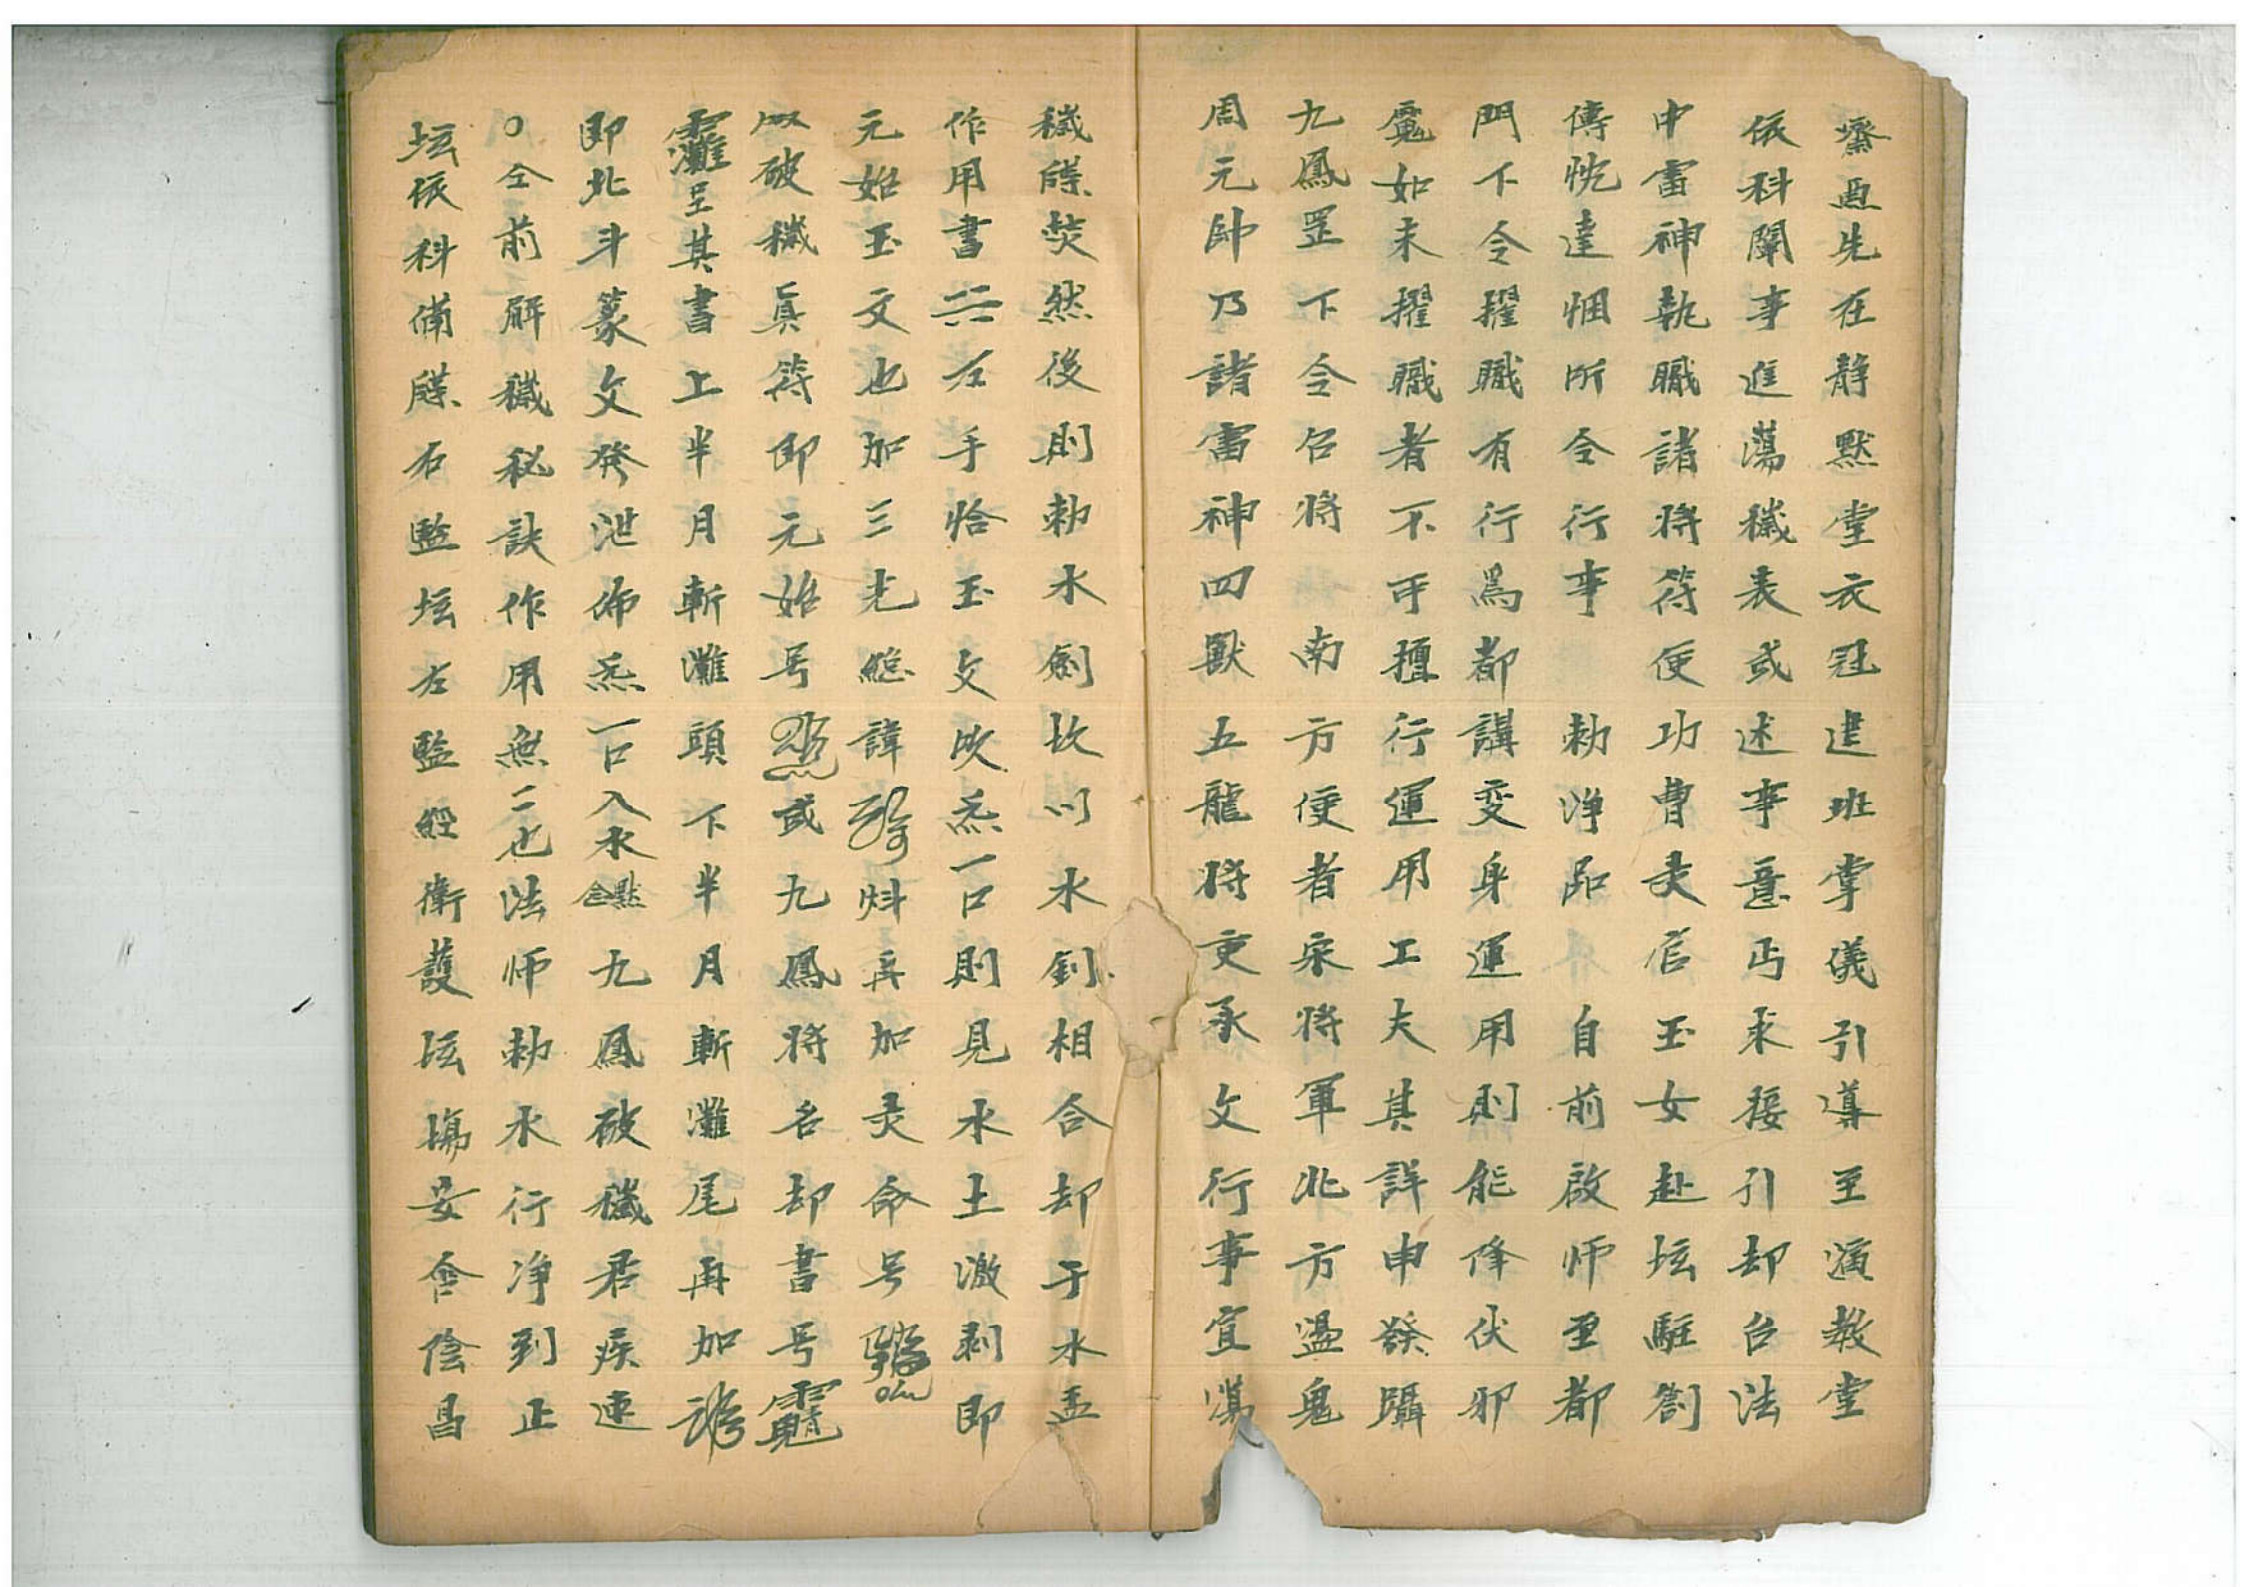 齋畫先在静默堂衣冠建班掌儀引導至演教堂
依科闡事進蕩穢表或述事意丐求接引却台法
中雷神執職諸將符使功曹灵官玉女赴坛駐劄
傳忱達悃所令行事 勅净品 自前啟师至都
門下令擢職有行爲都講变身運用則能降伏邪
魔如未擢職者不可擅行運用工夫其詳申發躡
九鳳罡下令召將 南方便者宋將軍北方温鬼
周元帥乃諸雷神四獸五龍將吏承文行事宜蕩
穢牒焚然後則勅水劍故以水釗相合却于水盂
作用書 左手恰玉文吹炁一口則見水土激剥即
元始玉文也加三光總諱 炓再加灵命号
破穢真符即元始号 或九鳳將名却書号
呈其書上半月斬灘頭下半月斬灘尾再加
即北斗篆文発泄佈炁一口入水念默九鳳破穢君疾速
○仝前解穢秘訣作用無二也法师勅水行净到止
坛依科俻牒右監坛左監經衛護坛塲安奮陰昌